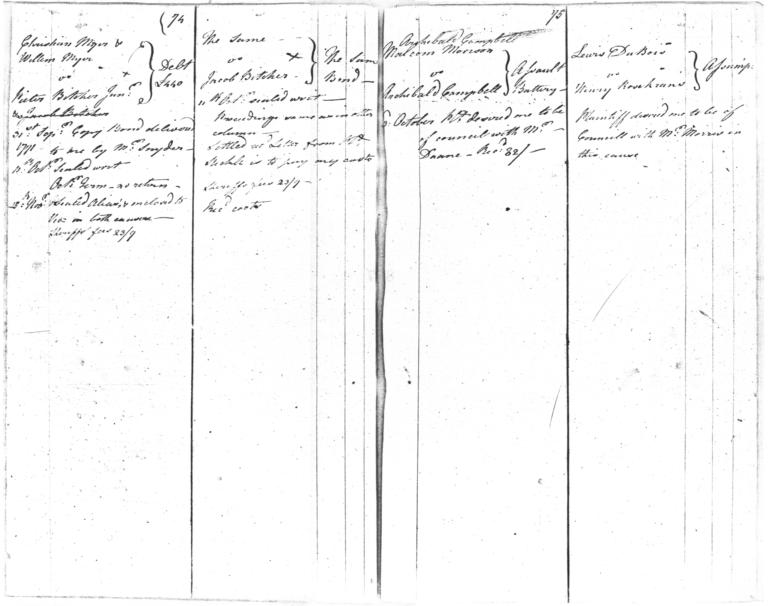 74
Christian Myer &
Willem Myer
vs +
Pieter Botcher Junr.
& Jacob Botcher
} Debt
£440
21st Sepr. Copy Bond delivered
1791 to me by Mr. Snyder
11th Octr. sealed writ
Octr. Term - no return -
2d. Novr. Sealed Alias's & enclosed to
in both causes
Sheriffs fees 23/9
The same -
vs +
Jacob Botcher -
} The same
Bond -
11th Octr. sealed writ -
Proceedings same as in other
column
Settled as Letter from
is to pay my costs
Sheriffs fees 23/9 -
Recd. costs
75
Archibald Campbell
Malcom Morison
vs
Archibald Campbell
} Assault
Battery -
October desired me to be
of council with Mr.
Duane - Recd. 32/-
Lewis DuBois
vs
Henry
} Assump.
Plaintiff desired me to be of
Council with Mr. Morris in
this cause